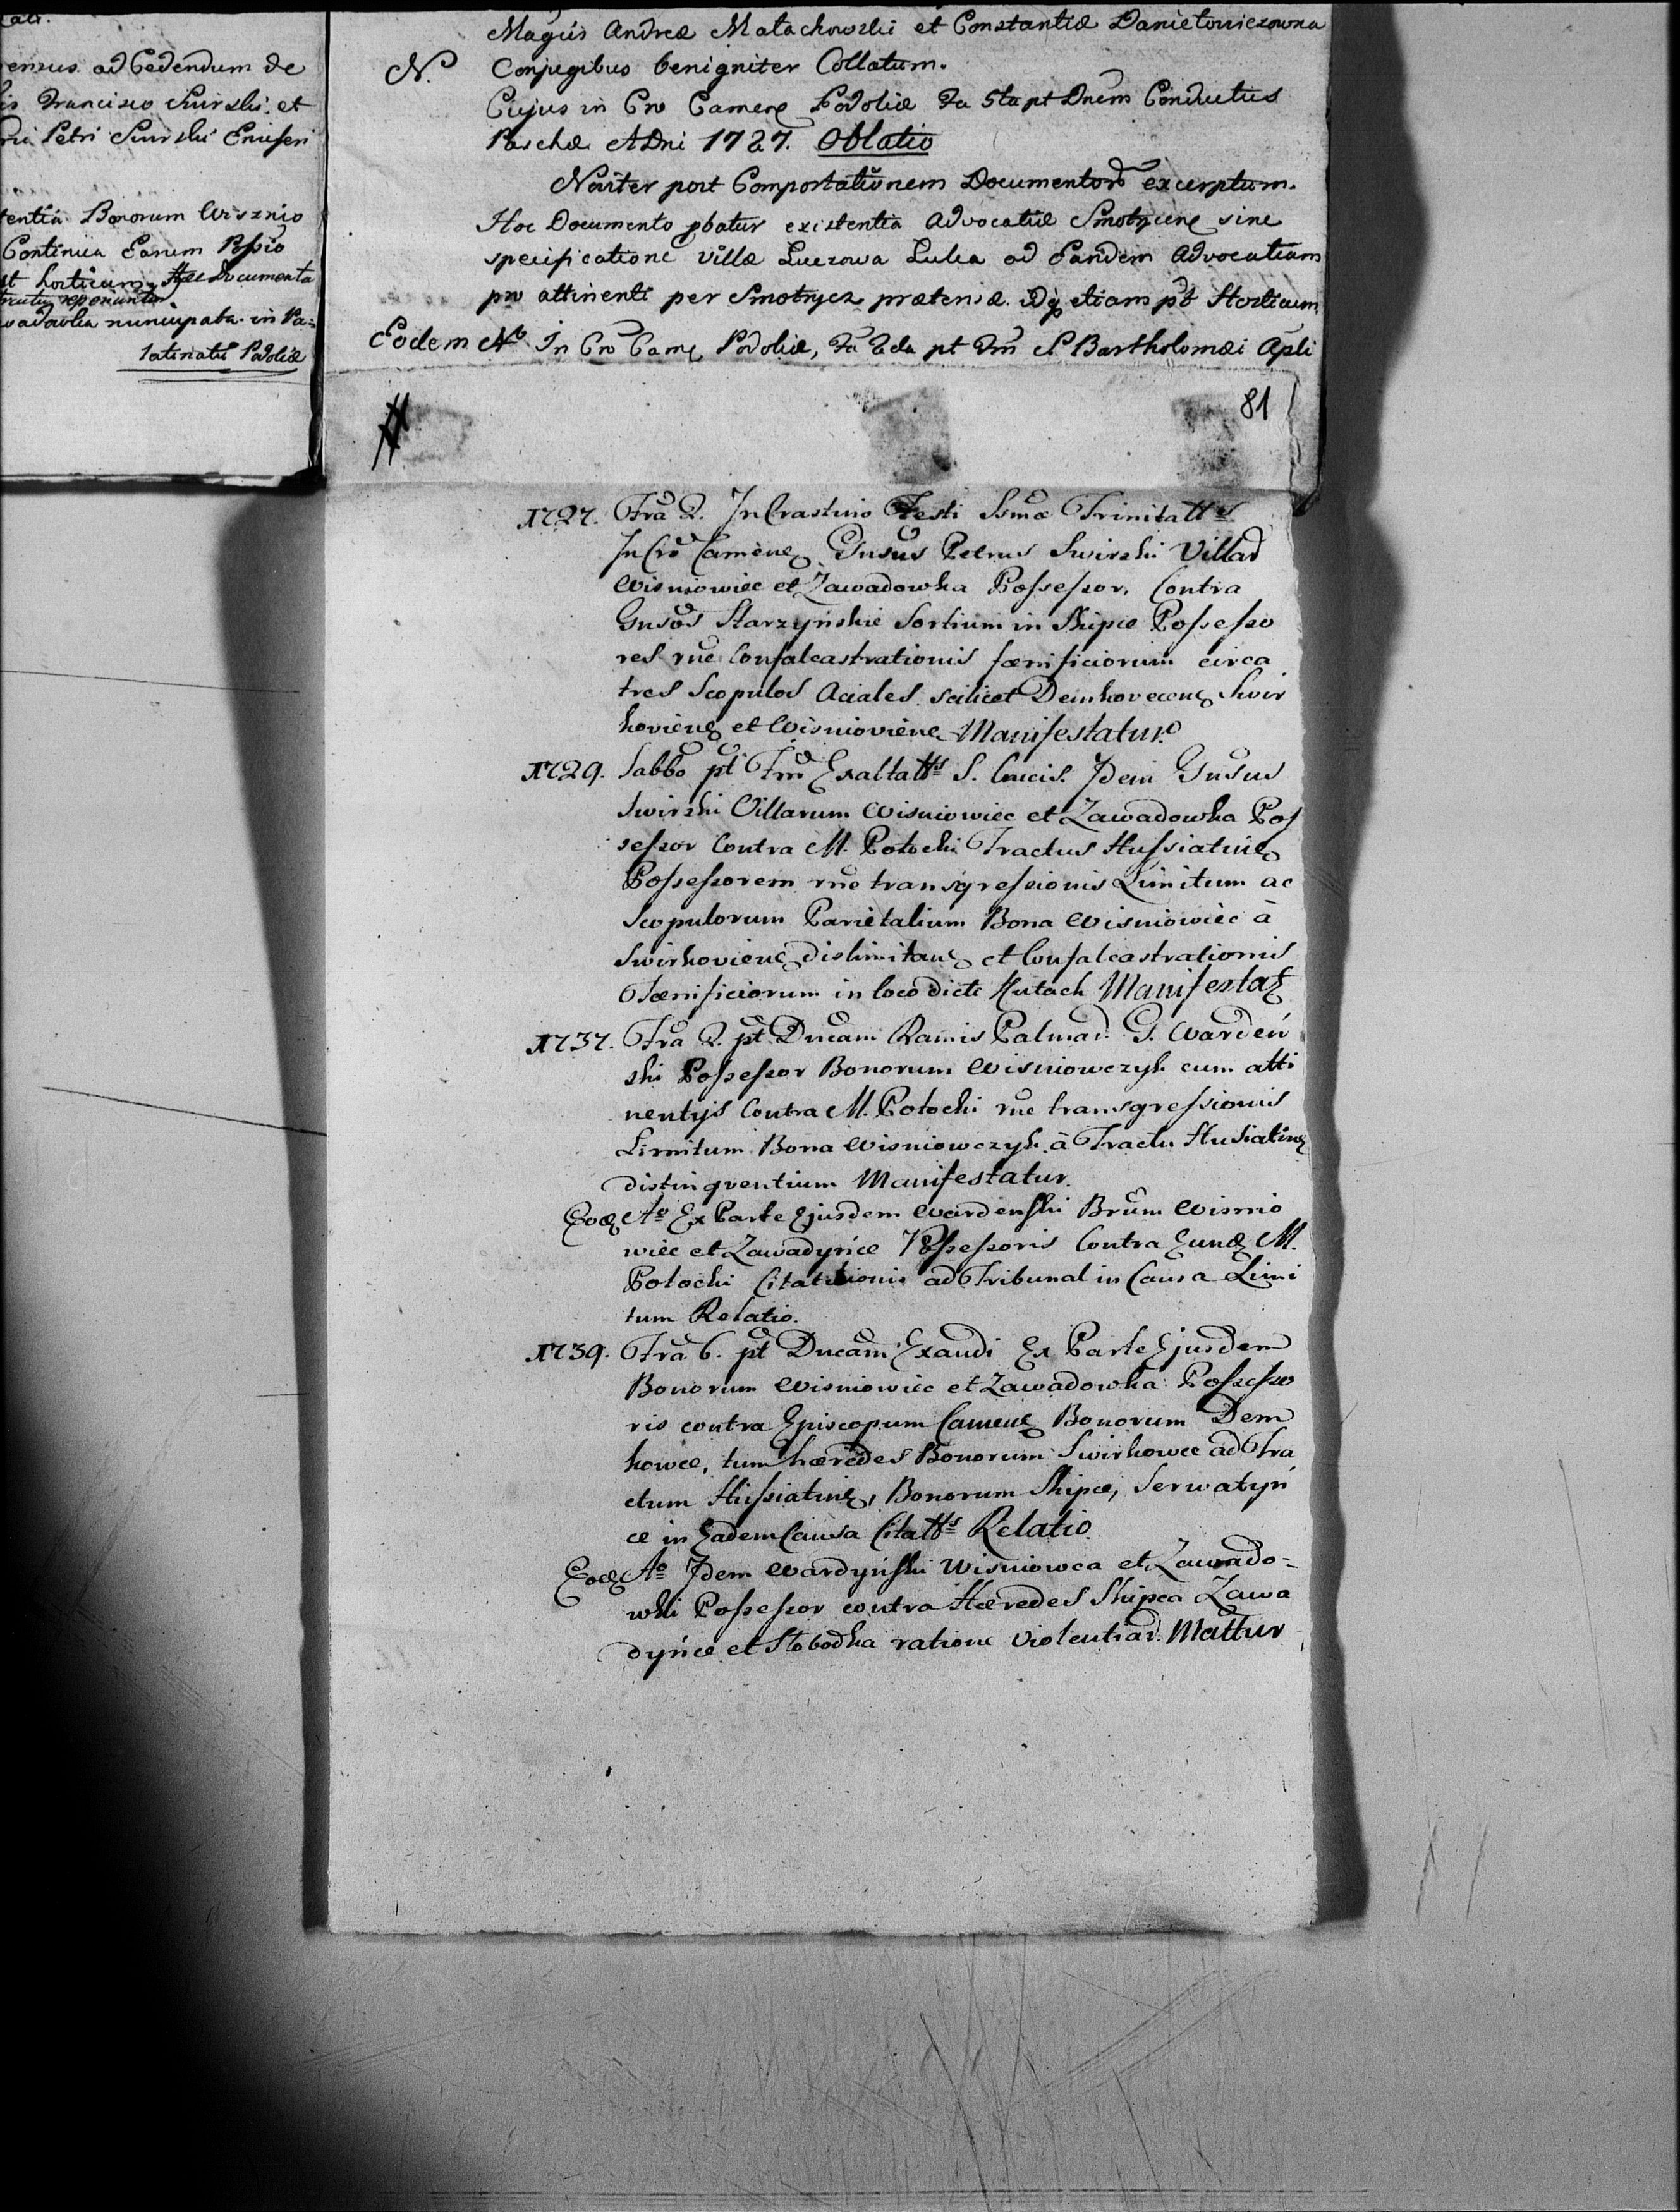 ensus ad Cedendum de
Francisco Swirski et
Petri Swirski Ensiferi
tentia Bonorum Wisznio
Continua Earum Possio
et horticum Hæc Documenta
reponuntur
nuncupata in Pa-
latinatû Podoliæ
Magcis Andreæ Małachowski et Constantiæ Daniełowiczowna
N. Conjugibus benigniter Collatum.
Cujus in Cro Camene Podoliæ Fa 5ta pt Dnem Conductus
Paschæ A Dni 1727. Oblatio
Noviter post Comportationem Documentor excerptum.
Hoc Documento pbatur existentia Advocatiæ Smotrycene sine
specificatione villæ Luczowa Luka ad Eandem Advocatiam
pro attinenti per Smotrycz prætensæ. etiam Horticum
Eodem Ao In Cro Came Podoliæ, Fa 2da pt Fm S Bartholomæi Apli
81
1727. Fra 2. In Crastino Festi Ssmæ Trinitatts
In Cro Camene Gnsus Petrus Swirski Villar
Wisniowiec et Zawadowka Possessor, Contra
Gnsos Starzyńskie Sortium in Skipce Possesso
res rne Confalcastrationis fœnificiorum circa
tres Scopulos Aciales scilicet Demkovecens Swir
koviens et Wisnioviens Manifestatur.
1729. Sabbo pt Fm Exaltatts S. Crucis. Idem Gnsus
Swirski Villarum Wisniowiec et Zawadowka Pos
sessor Contra M. Potocki Tractus Hussiatine
Possessorem rne transgressionis Limitum ac
Scopulorum Parietalium Bona Wisniowiec à
Swirkoviens dislimitans et Confalcastrationis
Fœnificiorum in loco dicte Hutach Manifestat
1737. Fra 2. pt Dncam Ramis Palmar G. Wardeń
ski Possessor Bonorum Wisniowczyk cum atti
nentys Contra M. Potocki rne transgressionis
Limitum Bona Wisniowczyk à Tractu Husiatine
distinqventium Manifestatur.
Eod Ao Ex Parte Ejusdem Wardenski Brum Wisnio
wiec et Zawadyńce Possessoris Contra Eund M.
Potocki Citationis ad Tribunal in Causa Limi
tum Relatio.
1739. Fra 6. pt Dncam Exaudi Ex Parte Ejusdem
Bonorum Wisniowiec et Zawadowka Possesso
ris contra Episcopum Camene Bonorum Dem
kowce, tum hæredes Bonorum Swirkowce ad Tra
ctum Hussiatine, Bonorum Skipce, Serwatyń
ce in Eadem Causa Citatts Relatio
Eod Ao Idem Wardyński Wisniowca et Zawado-
wki Possessor contra Hæredes Skipca Zawa
dyńce et Słobodka ratione violentiar. Mattur